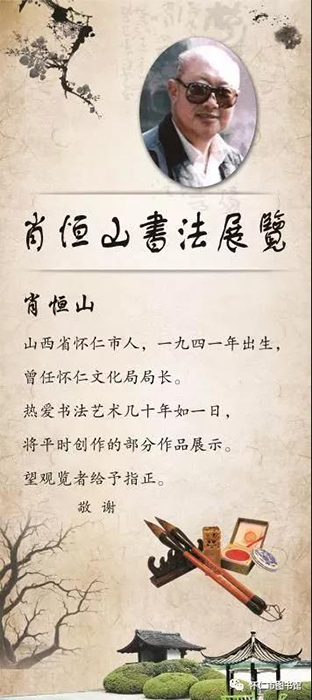 肖恒山書法展覽
肖恒山
山西省怀仁市人，一九四一年出生，
曾任怀仁文化局局长。
热爱书法艺术几十年如一日，
将平时创作的部分作品展示。
望观览者给予指正。
敬 谢
怀仁市图书馆